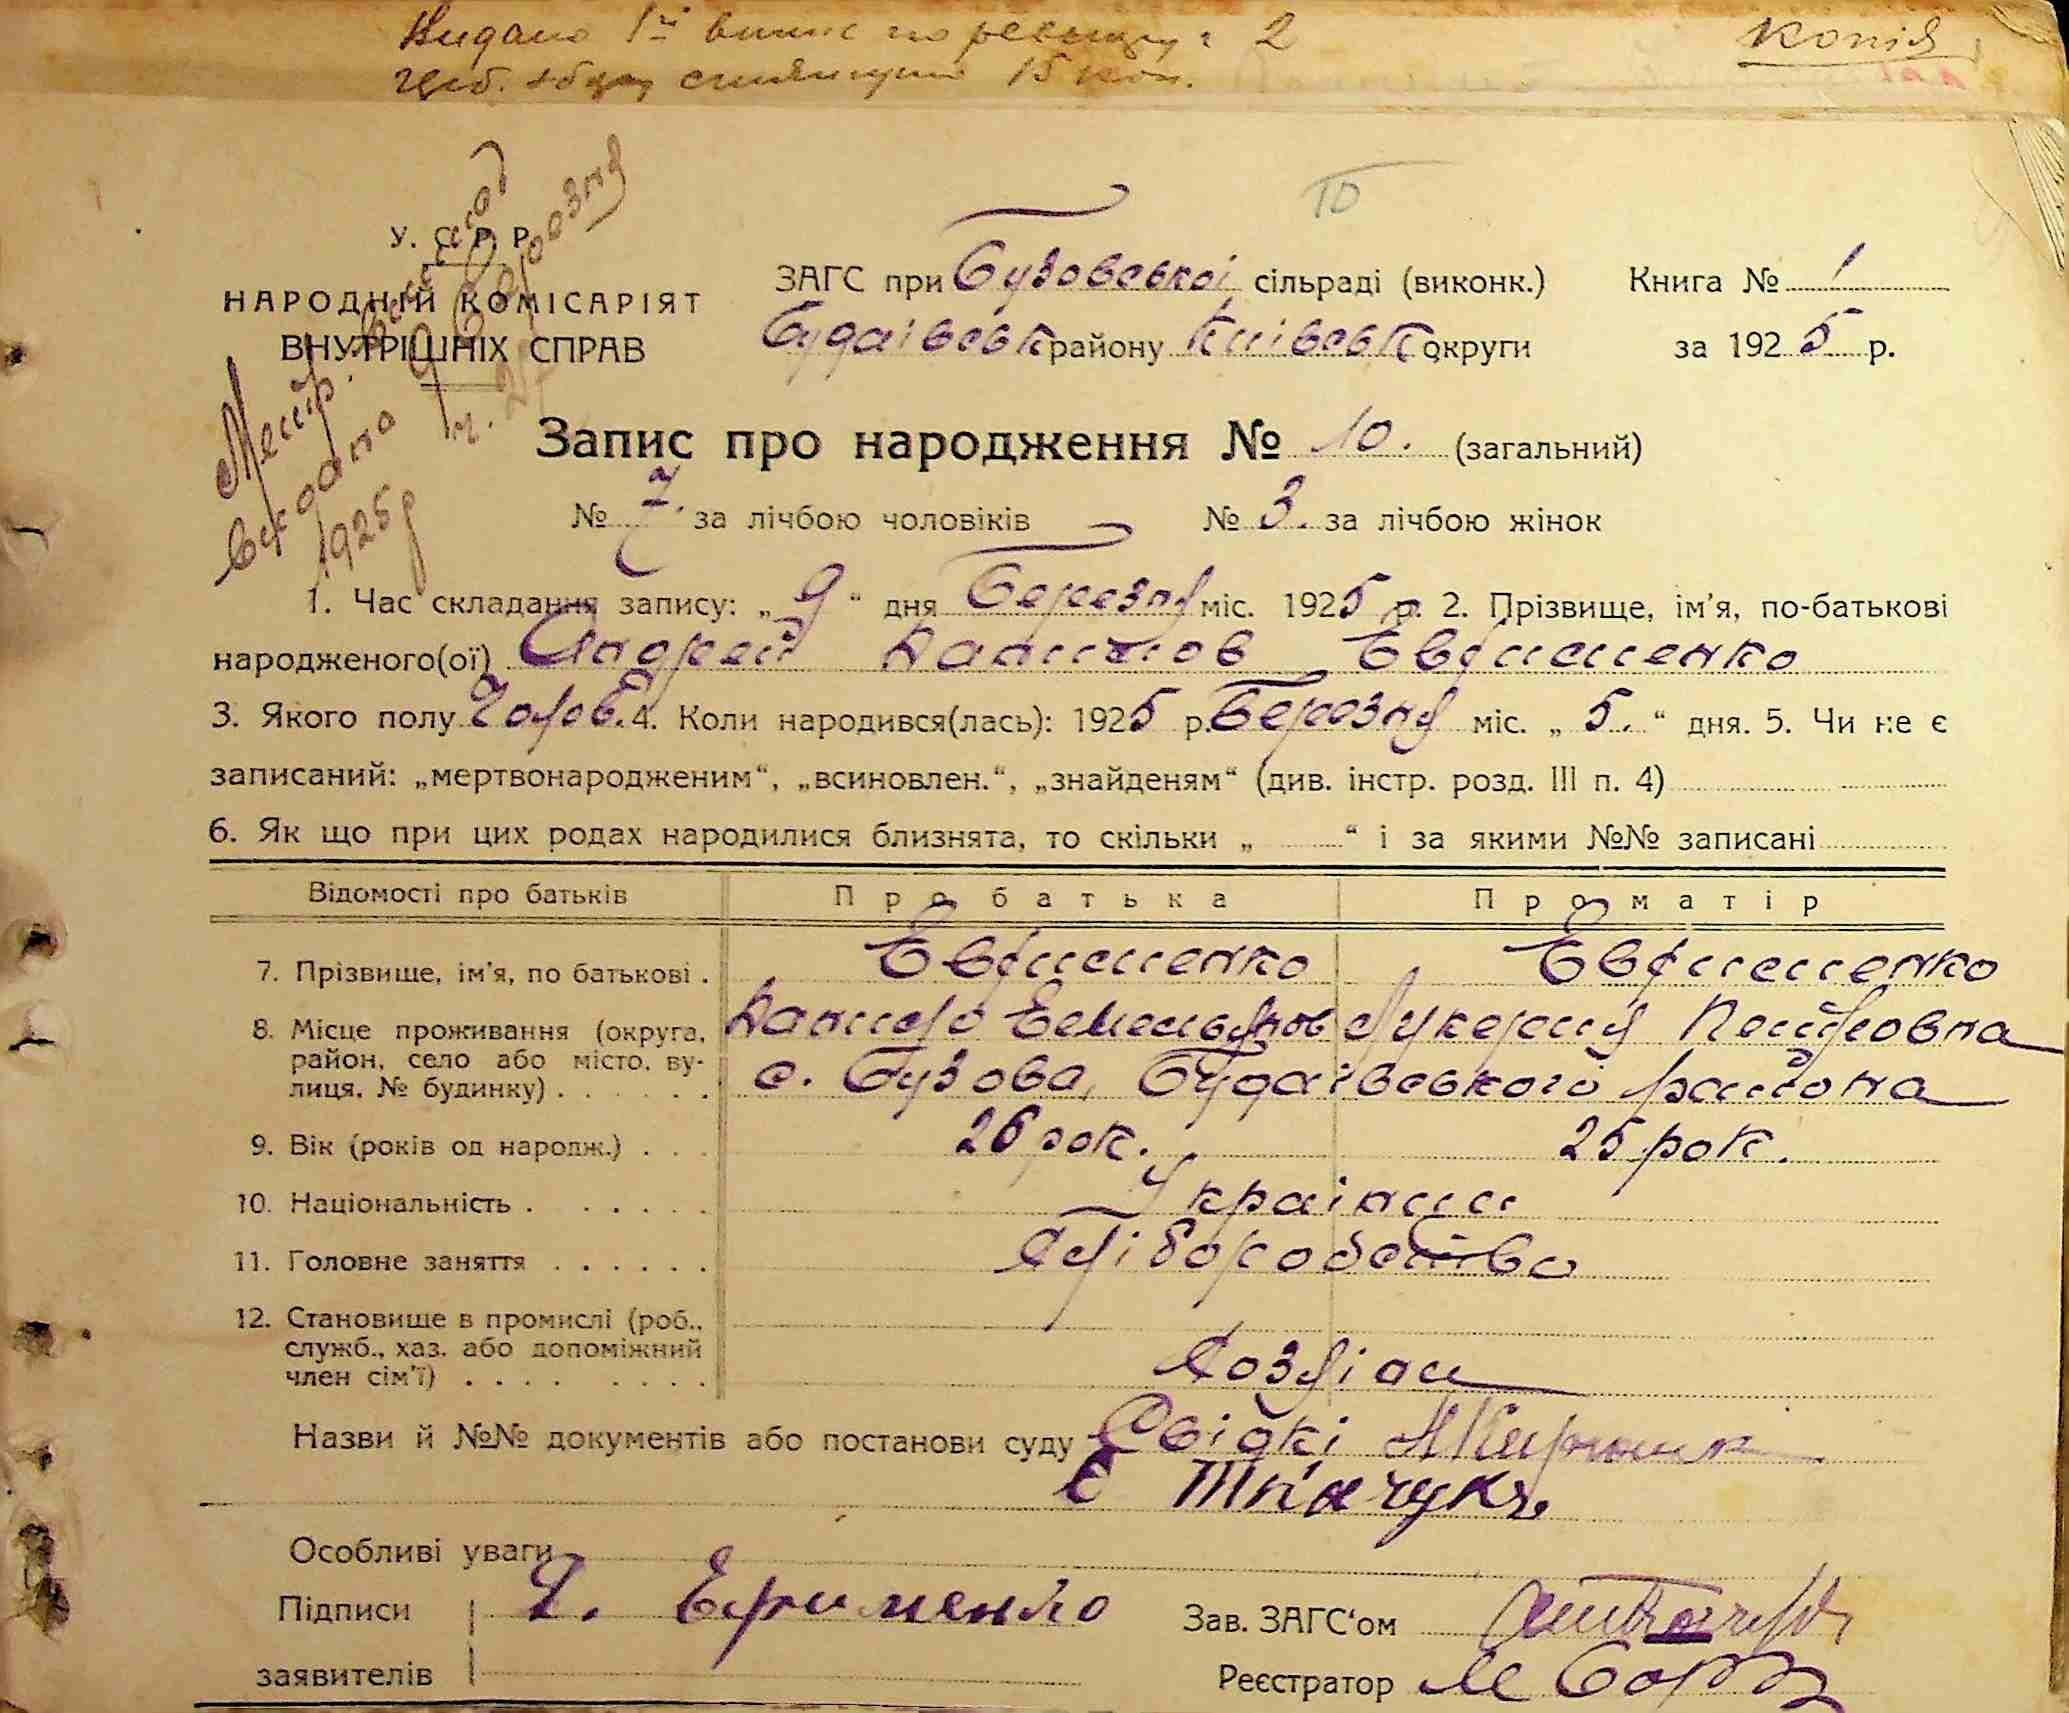 Видано 1й випис по реєстру № 2
збору стягнуто 15 коп.
Копія
У. С. Р. Р.
НАРОДНІЙ КОМІСАРІЯТ
ВНУТРІШНІХ СПРАВ
Метр. виписод
видано 9 Березня
1925 р ч. 27
ЗАГС при Бузовської сільраді (виконк.) Книга № 1
Будаївськ району Київськ округи за 1925 р.
Запис про народження № 10. (загальний)
№ 7. за лічбою чоловіків № 3. за лічбою жінок
1. Час складання запису: „9“ дня Березня міс. 1925 р. 2. Прізвище, ім'я, по-батькові
народженого(ої) Андрей Данилов Евфименко
3. Якого полу Чолов. 4. Коли народився(лась): 1925 р. Березня міс. „5.“ дня. 5. Чи не є
записаний: „мертвонародженим“, „всиновлен.“, „знайденям“ (див. інстр. розд. III п. 4)
6. Як що при цих родах народилися близнята, то скільки „ “ і за якими №№ записані
Відомості про батьків Про батька Про матір
7. Прізвище, ім'я, по батькові . Евфименко Евфименко
8. Місце проживання (округа, Данило Емельянов Лукерия Петровна
район, село або місто, ву-
лиця, № будинку) . . . . . . с. Бузова, Будаївського района
9. Вік (років од народж.) . . . 26 рок. 25 рок.
10. Національність . . . . . . Українци
11. Головне заняття . . . . . . Хліборобство
12. Становище в промислі (роб.,
служб., хаз. або допоміжний
член сім'ї) . . . . . . . . Хозяіни
Назви й №№ документів або постанови суду Свідкі
Є Ткачук
Особливі уваги
Підписи Д. Ефименко Зав. ЗАГС'ом
заявителів Реєстратор